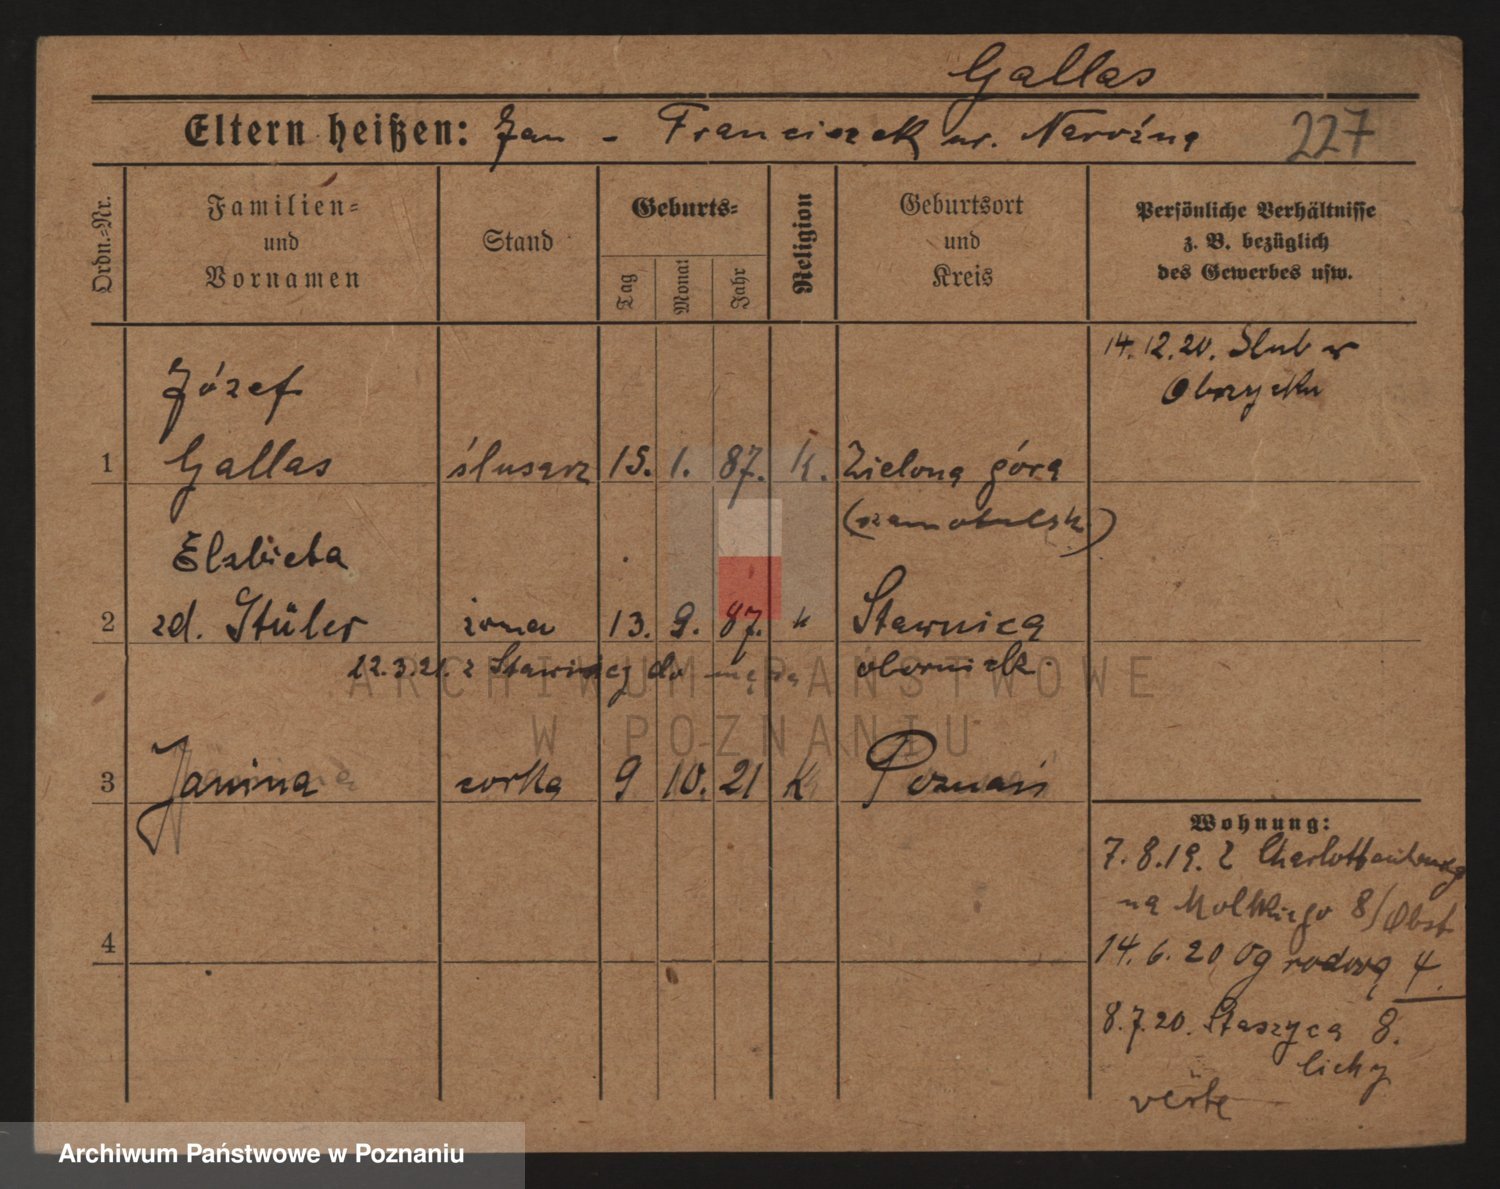 Gallas
Eltern heißen: Jan - Franciszek ur. Narożna 227
Ordn.=Nr.
Familien=
und
Vornamen
Stand
Geburts=
Tag
Monat
Jahr
Religion
Geburtsort
und
Kreis
Persönliche Verhältnisse
z. B. bezüglich
des Gewerbes usw.
14.12.20. Ślub w
Obrzycku
Józef
1 Gallas ślusarz 15. 1. 87. K. Zielona góra
(szamotulsk.)
Elzbieta
2 zd. Stüler żona 13. 9. 87. K Stawnica
22.3.21. z Stawnicy do męża obornicki
3 Janina corka 9 10. 21 K Poznań
4
Wohnung:
7.8.19. z Charlottenburg
na Moltkiego 8/ Obst
14.6.20 Ogrodową 4.
8.7.20. Staszyca 8.
verte
ARCHIWUM PAŃSTWOWE
W POZNANIU
Archiwum Państwowe w Poznaniu